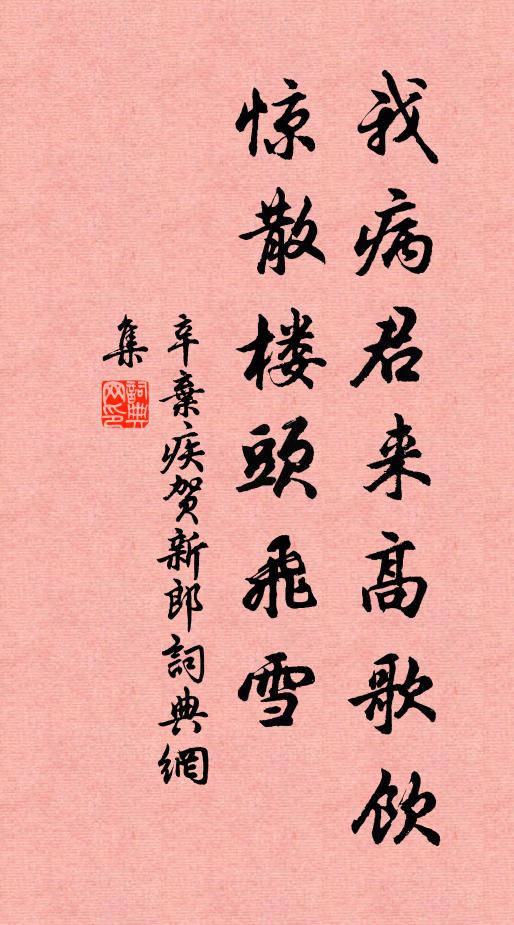 我病君来高歌饮
惊散楼头飞雪
辛棄疾贺新郎詞典網
集
詞典網印